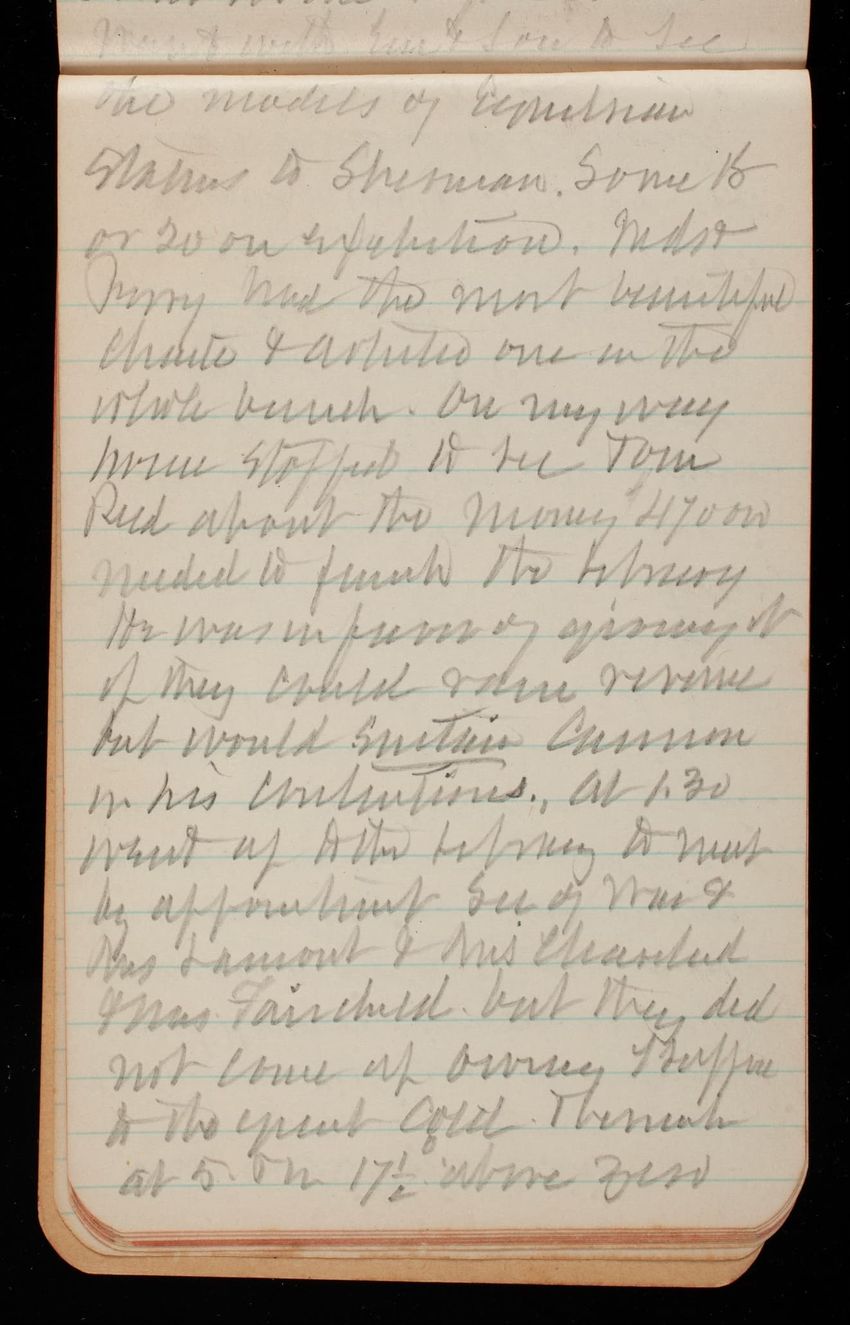 Went with Gen & Son to see
the models of Equestrian
Statues to Sherman. Some 15
or 20 on exhibition.
had the most beautiful
Chaste & artistic one in the
whole bunch. On my way
home Stopped to see Tom
Reed about the money
needed to finish the Library
He was in favor of giving it
if they could raise revenue
but would Sustain Cannon
in his Contentions., at 1.30
went up to the Library to meet
by appointment Sec of War &
Mrs Lamont & Mrs Cleaveland
& Mrs Fairchild. but they did
not come up owing I suppose
to the great Cold. Thermoh
at 5. Pm 17½ above zero